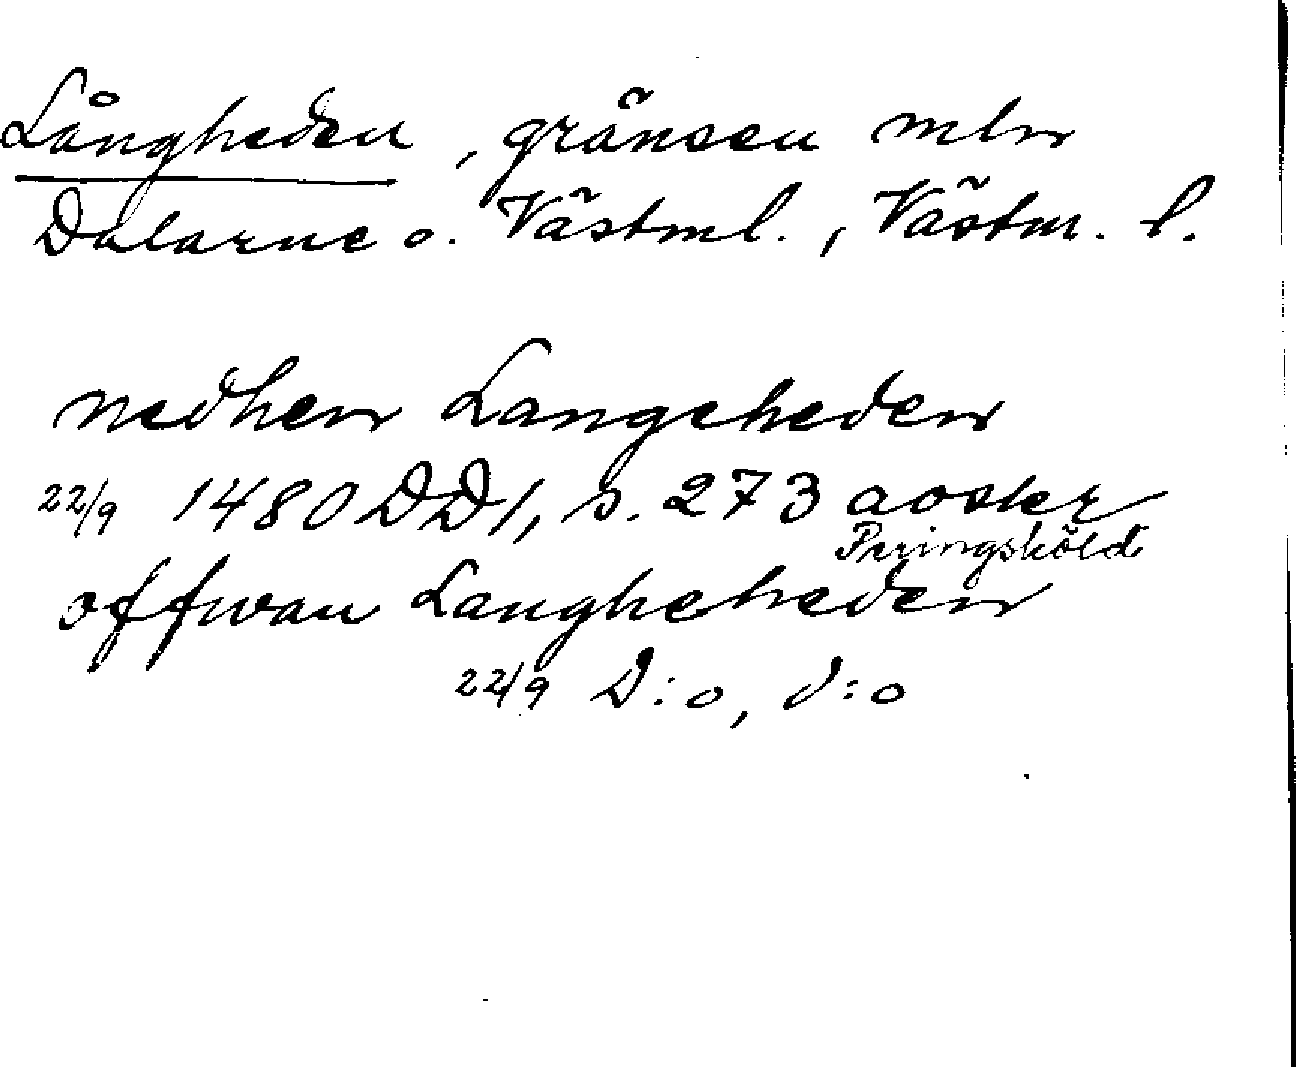 Långheden, gränsen mln
Dalarne o. Västml., Västm. l.
nedhen Langeheden
22/9 1480 DD1, s. 273 avskr
Peringsköld
offwan Langheheden
22/9 D:o, d:o